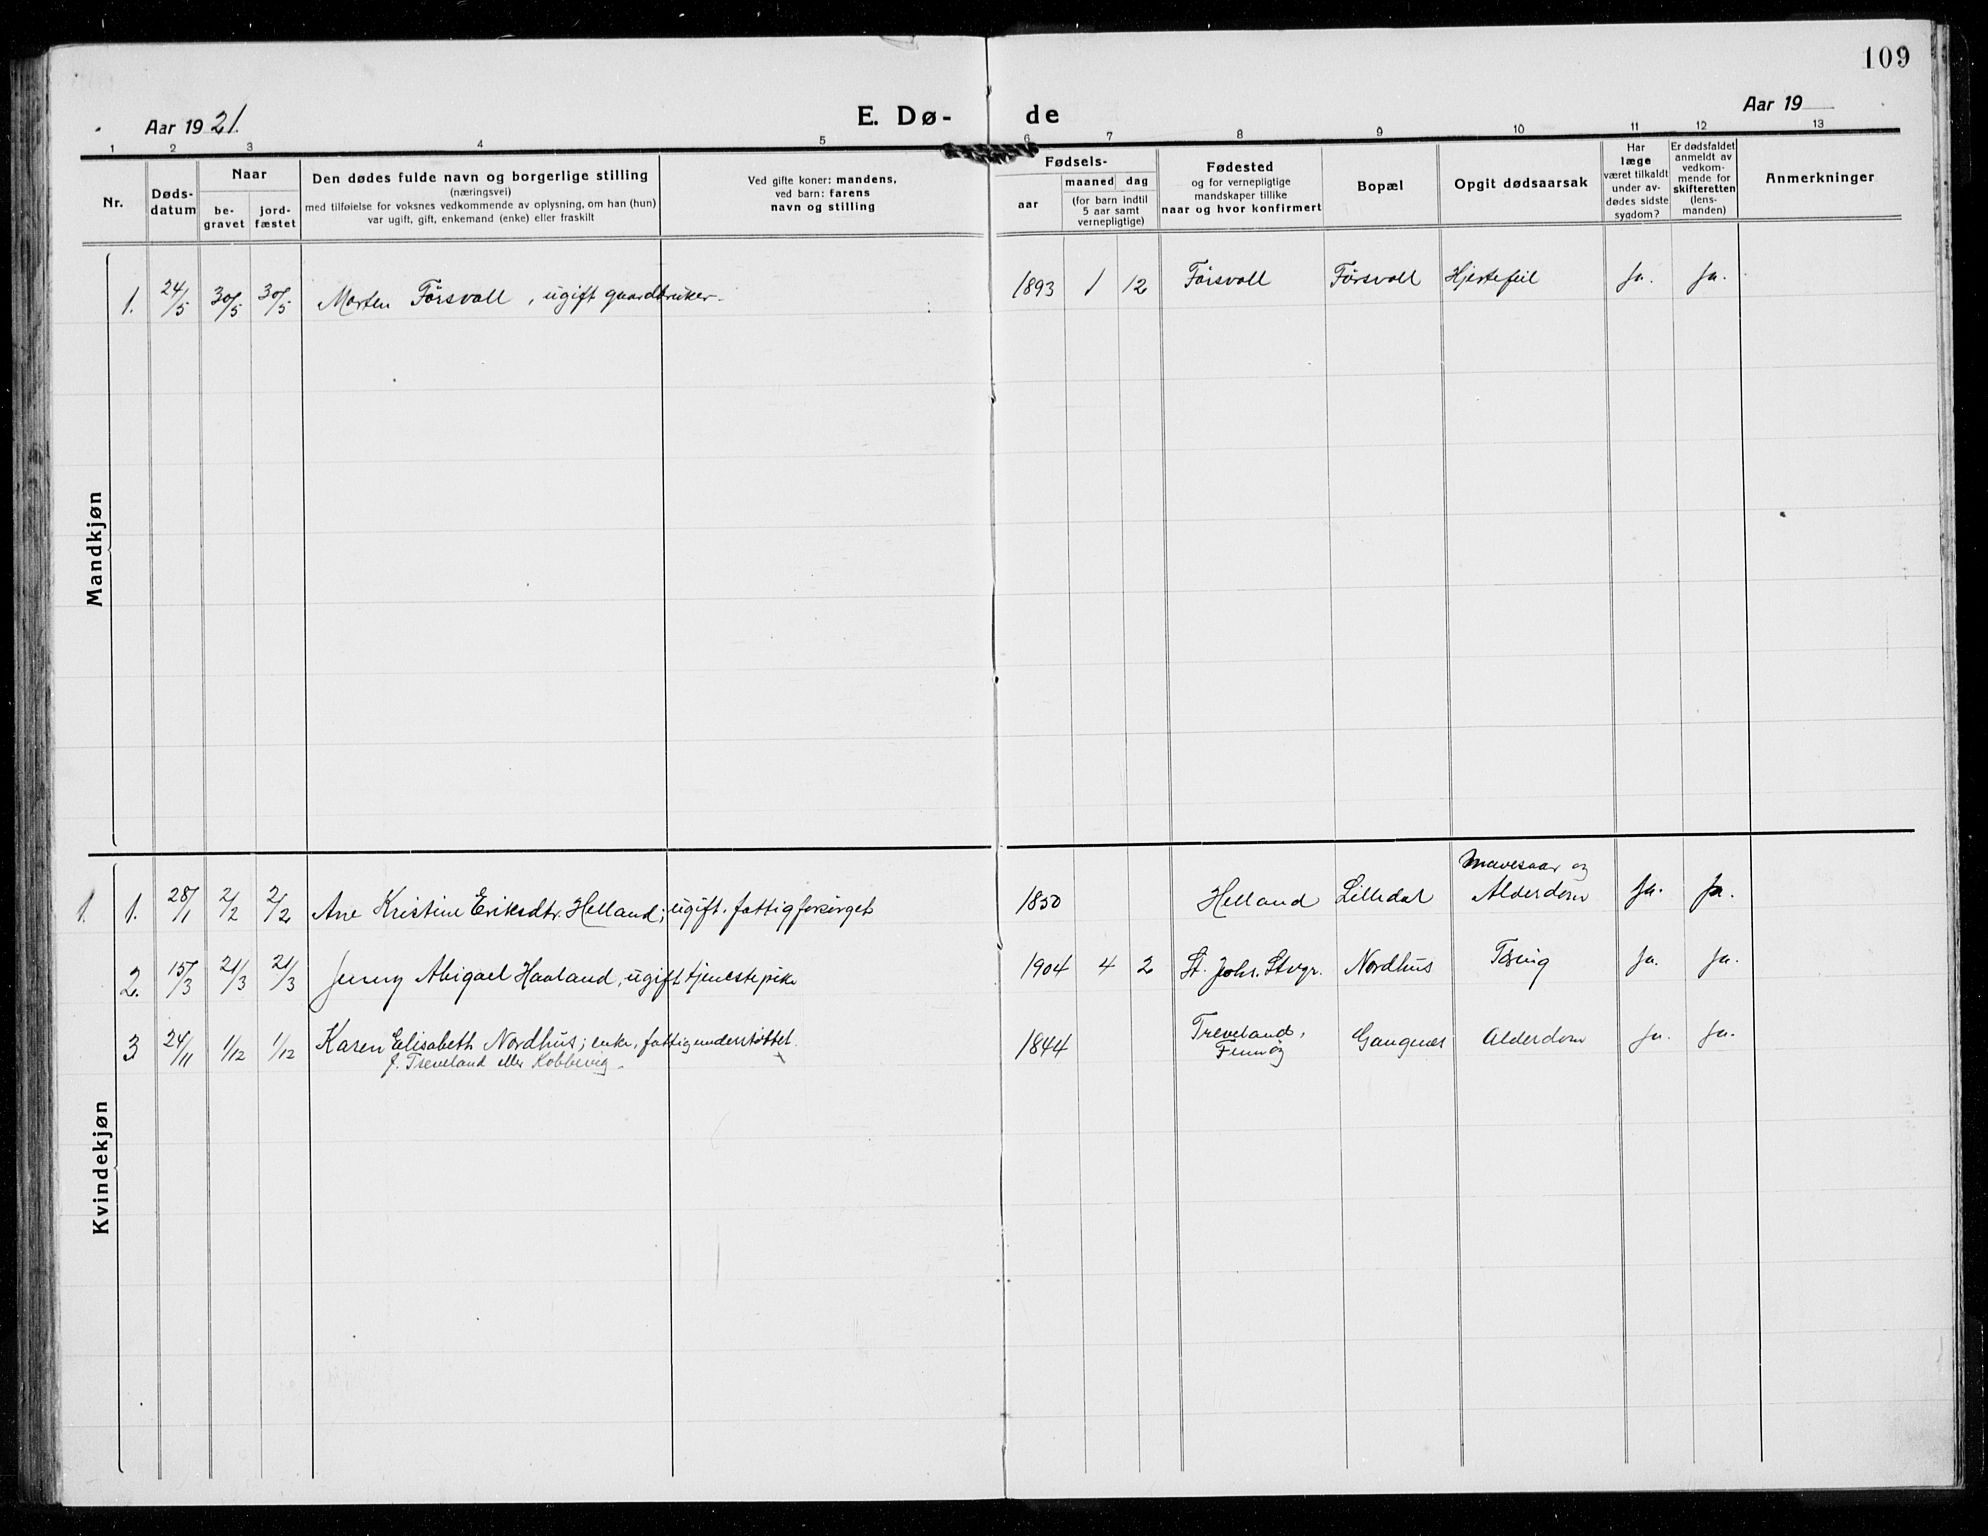 109
Aar 1921.
E. Dø- de
Aar 19
1 2 3 4 5 6 7 8 9 10 11 12 13
Nr.
Døds-
datum
Naar
be-
gravet
jord-
fæstet
Den dødes fulde navn og borgerlige stilling
(næringsvei)
med tilføielse for voksnes vedkommende av oplysning, om han (hun)
var ugift, gift, enkemand (enke) eller fraskilt
Ved gifte koner: mandens,
ved barn: farens
navn og stilling
Fødsels-
aar
maaned dag
(for barn indtil
5 aar samt
vernepligtige)
Fødested
og for vernepligtige
mandskaper tillike
naar og hvor konfirmert
Bopæl
Opgit dødsaarsak
Har
læge
været tilkaldt
under av-
dødes sidste
sygdom?
Er dødsfaldet
anmeldt av
vedkom-
mende for
skifteretten
(lens-
manden)
Anmerkninger
Mandkjøn
1. 24/5 30/5 30/5 Morten Førsvoll, ugift gaardbruker. 1893 1 12 Førsvoll Førsvoll Hjertefeil Ja. Ja.
Kvindekjøn
Mavesaar og
1. 1. 28/1 2/2 2/2 Ane Kristine Eriksdtr. Helland; ugift. fattigforsørget 1850 Helland Lilledal Alderdom Ja. Ja.
2. 15/3 21/3 21/3 Jenny Abigael Haaland, ugift tjenestepike 1904 4 2 St. Joh. Stvgr. Nordhus Tæring Ja. Ja.
3 24/11 1/12 1/12 Karen Elisabeth Nordhus; enke, fattigunderstøttet. 1844 Treveland, Gangnes Alderdom Ja. Ja.
f. Treveland eller Kobbevig. Finnøy